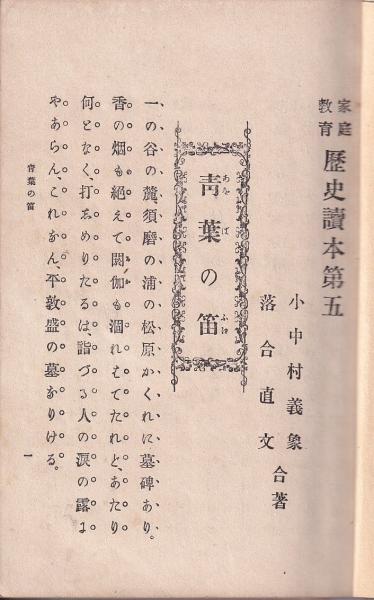 家庭教育 歷史讀本第五
小中村義象
落合直文 合著
靑葉の笛
一の谷の麓、須磨の浦の松原がくれに墓碑あり。
香の烟も絕えて閼伽も涸れはてたれど、あたり
何となく、打しめりたるは、詣づる人の淚の露よ
やあらんこれなん、平敦盛の墓なりける。
青葉の笛
一